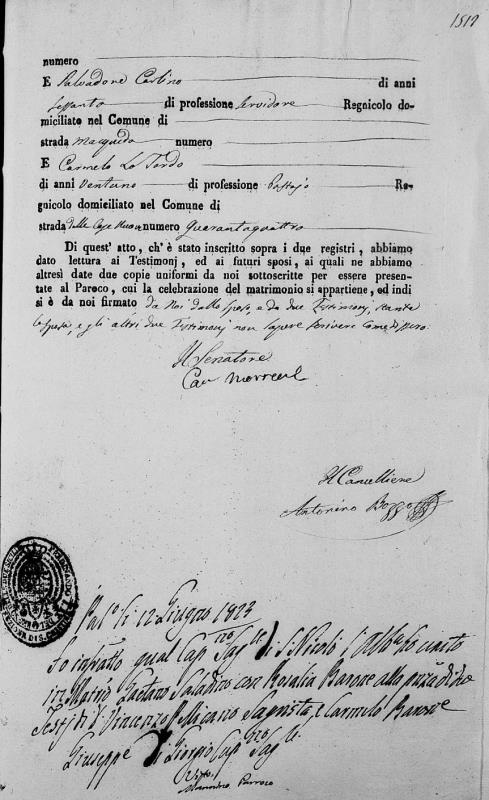 1512
numero
E Salvadore Carlino di anni
Sessanta di professione Servidore Regnicolo do-
miciliato nel Comune di
strada Macqueda numero
E Carmelo Lo Tordo
di anni Ventuno di professione Pastajo Re-
gnicolo domiciliato nel Comune di
strada delle Case Nuove numero Quarantaquattro
Di quest' atto, ch'è stato inscritto sopra i due registri, abbiamo
dato lettura ai Testimonj, ed ai futuri sposi, ai quali ne abbiamo
altresì date due copie uniformi da noi sottoscritte per essere presen-
tate al Paroco, cui la celebrazione del matrimonio si appartiene, ed indi
si è da noi firmato da Noi dallo Sposo, e da due Testimonj, stante
la Sposa, e gli altri due Testimonj non sapere scrivere come dissero
Il Senatore
Cav
Il Cancelliere
Antonino Bozzo
Pal.º li 12 Giugno 1823
Io infratto qual Cap di S. Nicolò l'Alb
in Matrio Gaetano Saladino con Rosalia Barone alla
Testj di Vincenzo Sagrista, e Carmelo Barone
Giuseppe Di Giorgio Cap
Parroco